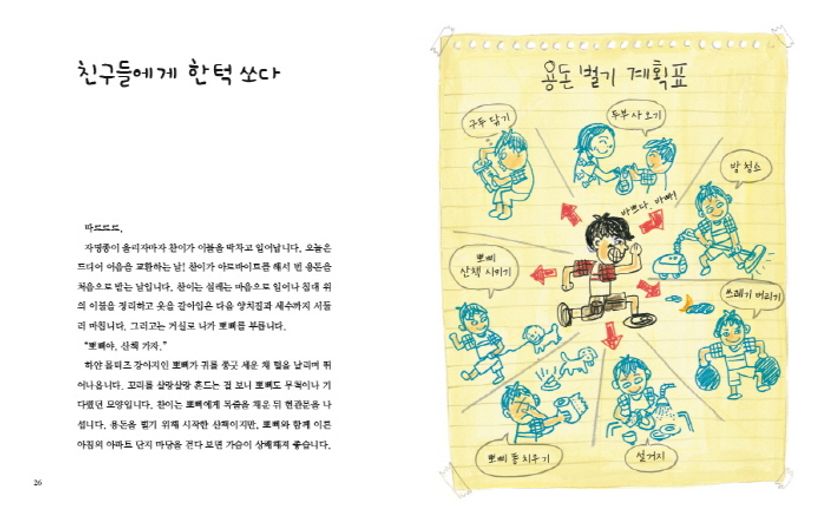 친구들에게 한턱 쏘다
따르르르.
자명종이 울리자마자 찬이가 이불을 박차고 일어납니다. 오늘은
드디어 어음을 교환하는 날! 찬이가 아르바이트를 해서 번 용돈을
처음으로 받는 날입니다. 찬이는 설레는 마음으로 일어나 침대 위
의 이불을 정리하고 옷을 갈아입은 다음 양치질과 세수까지 서둘
러 마칩니다. 그리고는 거실로 나가 뽀삐를 부릅니다.
“뽀삐야, 산책 가자.”
하얀 몰티즈 강아지인 뽀삐가 귀를 쫑긋 세운 채 털을 날리며 뛰
어나옵니다. 꼬리를 살랑살랑 흔드는 걸 보니 뽀삐도 무척이나 기
다렸던 모양입니다. 찬이는 뽀삐에게 목줄을 채운 뒤 현관문을 나
섭니다. 용돈을 벌기 위해 시작한 산책이지만, 뽀삐와 함께 이른
아침의 아파트 단지 마당을 걷다 보면 가슴이 상쾌해져 좋습니다.
26
용돈 벌기 계획표
구두 닦기
두부 사 오기
방 청소
바쁘다, 바빠!
뽀삐
산책 시키기
쓰레기 버리기
뽀삐 똥 치우기
설거지